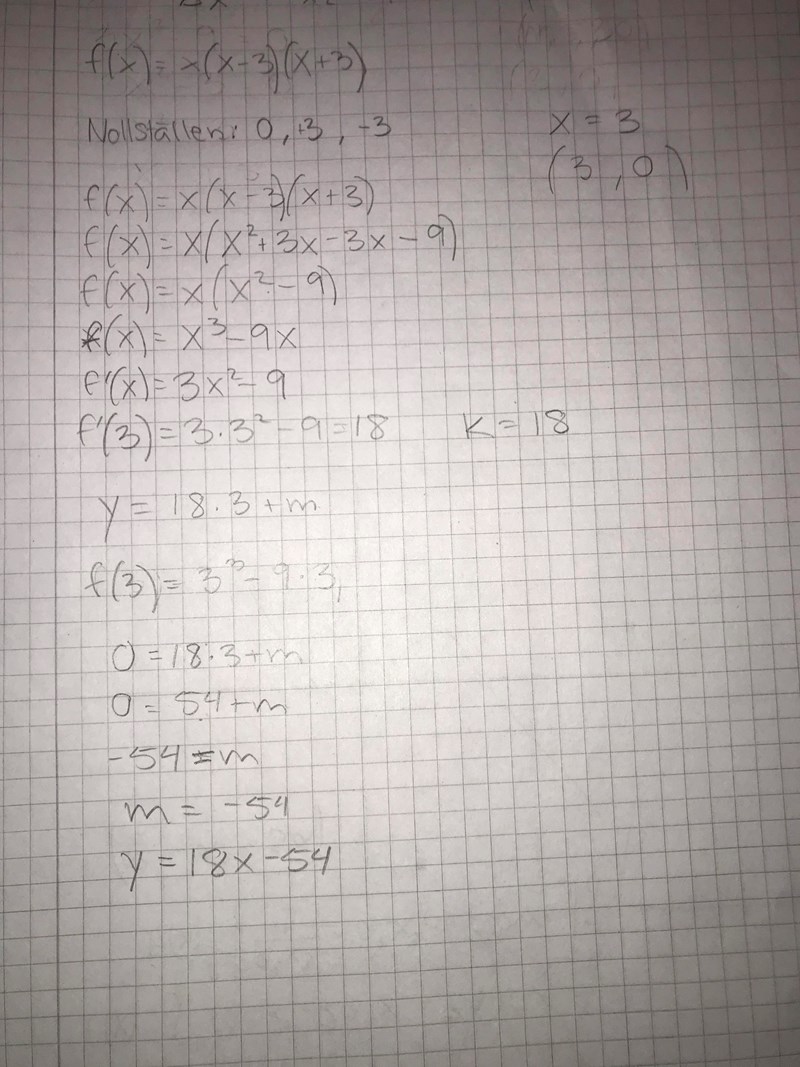 f(x) = x(x-3)(x+3)
Nollställen: 0, +3, -3
x = 3
(3, 0)
f(x) = x(x-3)(x+3)
f(x) = x(x²+3x-3x-9)
f(x) = x(x²-9)
f(x) = x³-9x
f'(x) = 3x²-9
f'(3) = 3·3²-9 = 18 K = 18
y = 18·3+m
f(3) = 3³-9·3,
0 = 18·3+m
0 = 54+m
-54 = m
m = -54
y = 18x-54